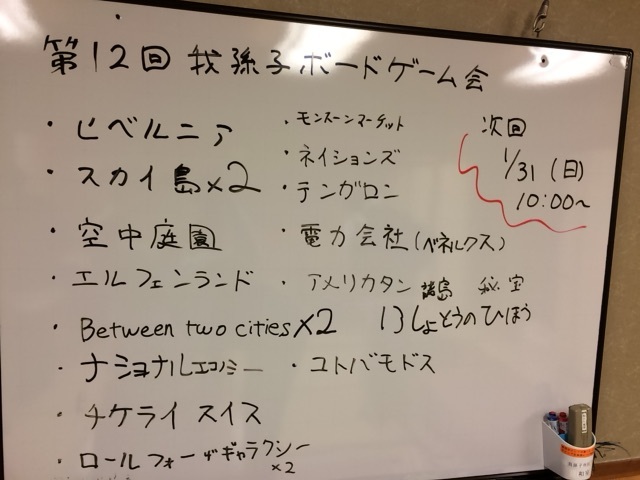 第12回 我孫子ボードゲーム会
・ヒベルニア
・スカイ島×2
・空中庭園
・エルフェンランド
・Between two cities×2
・ナショナルエコノミー
・チケライ スイス
・ロールフォーザギャラクシー
×2
・モンスーンマーケット
・ネイションズ
・テンガロン
・電力会社(ベネルクス)
・アメリカタン 諸島 秘宝
13しょとうのひほう
・ユトバモドス
次回
1/31(日)
10:00~